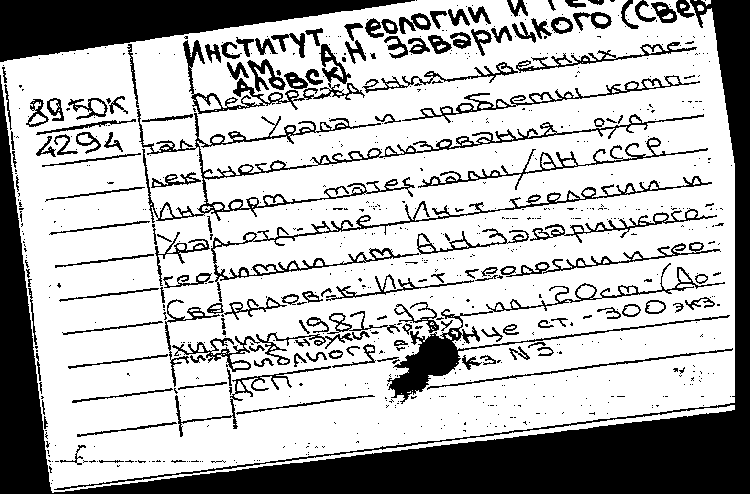 Институт геологии и
им. А.Н. Заварицкого (Свер-
дловск).
89-50К
4294
Месторождения цветных ме-
таллов Урала и проблемы комп-
лексного использования руд:
Информ. материалы / АН СССР.
Урал. отд-ние, Ин-т геологии и
геохимии им. А.Н. Заварицкого.-
Свердловск: Ин-т геологии и гео-
химии, 1987.-93с.: ил.; 20см-(До-
стижения науки-пр-ву)
Библиогр. в конце ст. -300 экз.
ДСП. кз. N3.
6